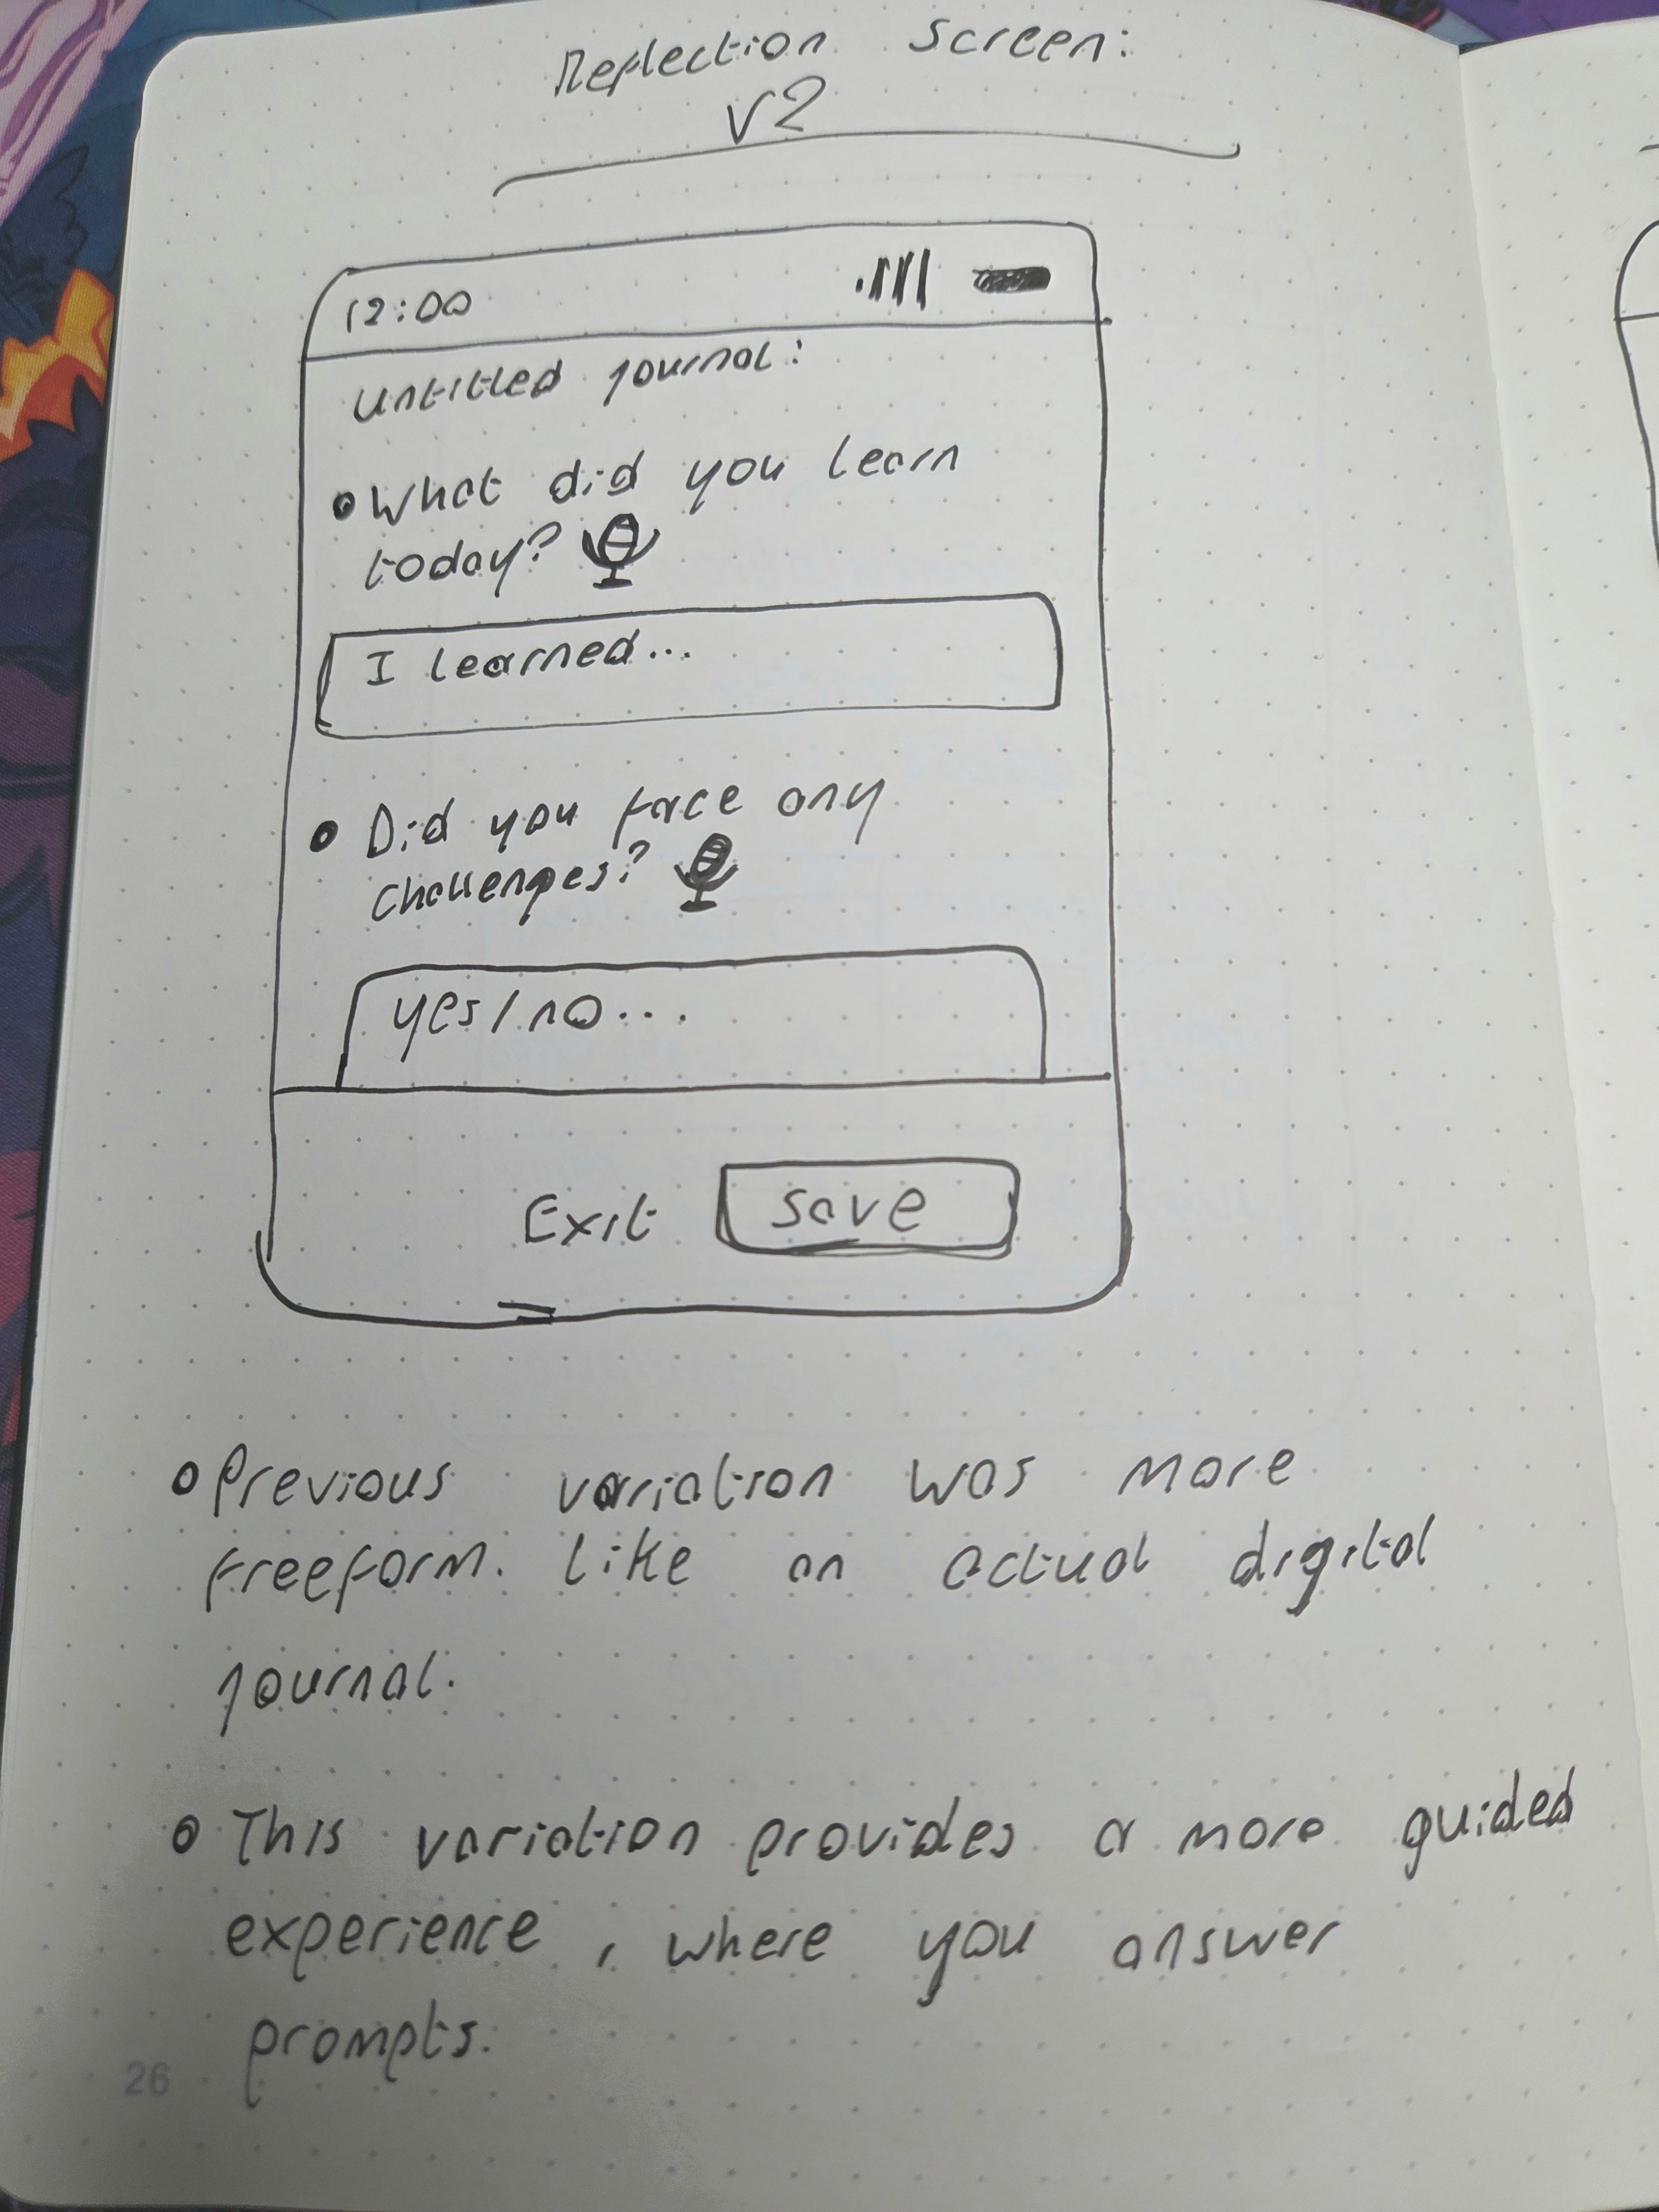 Reflection Screen:
V2
12:00
untitled journal:
• What did you learn
today?
I learned...
• Did you face any
challenges?
yes/no...
Exit save
• Previous variation was more
freeform. like an actual digital
journal.
• This variation provides a more guided
experience, where you answer
prompts.
26